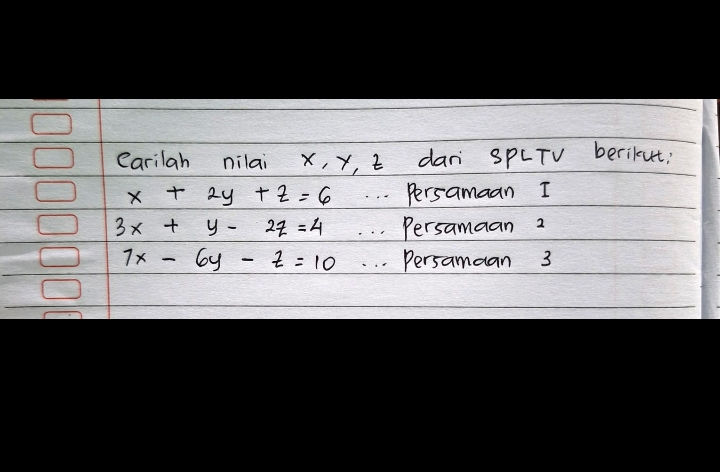 Carilah nilai x, y, z dari SPLTV berikut:
x + 2y + z = 6 ... Persamaan I
3x + y - 2z = 4 ... Persamaan 2
7x - 6y - z = 10 ... Persamaan 3